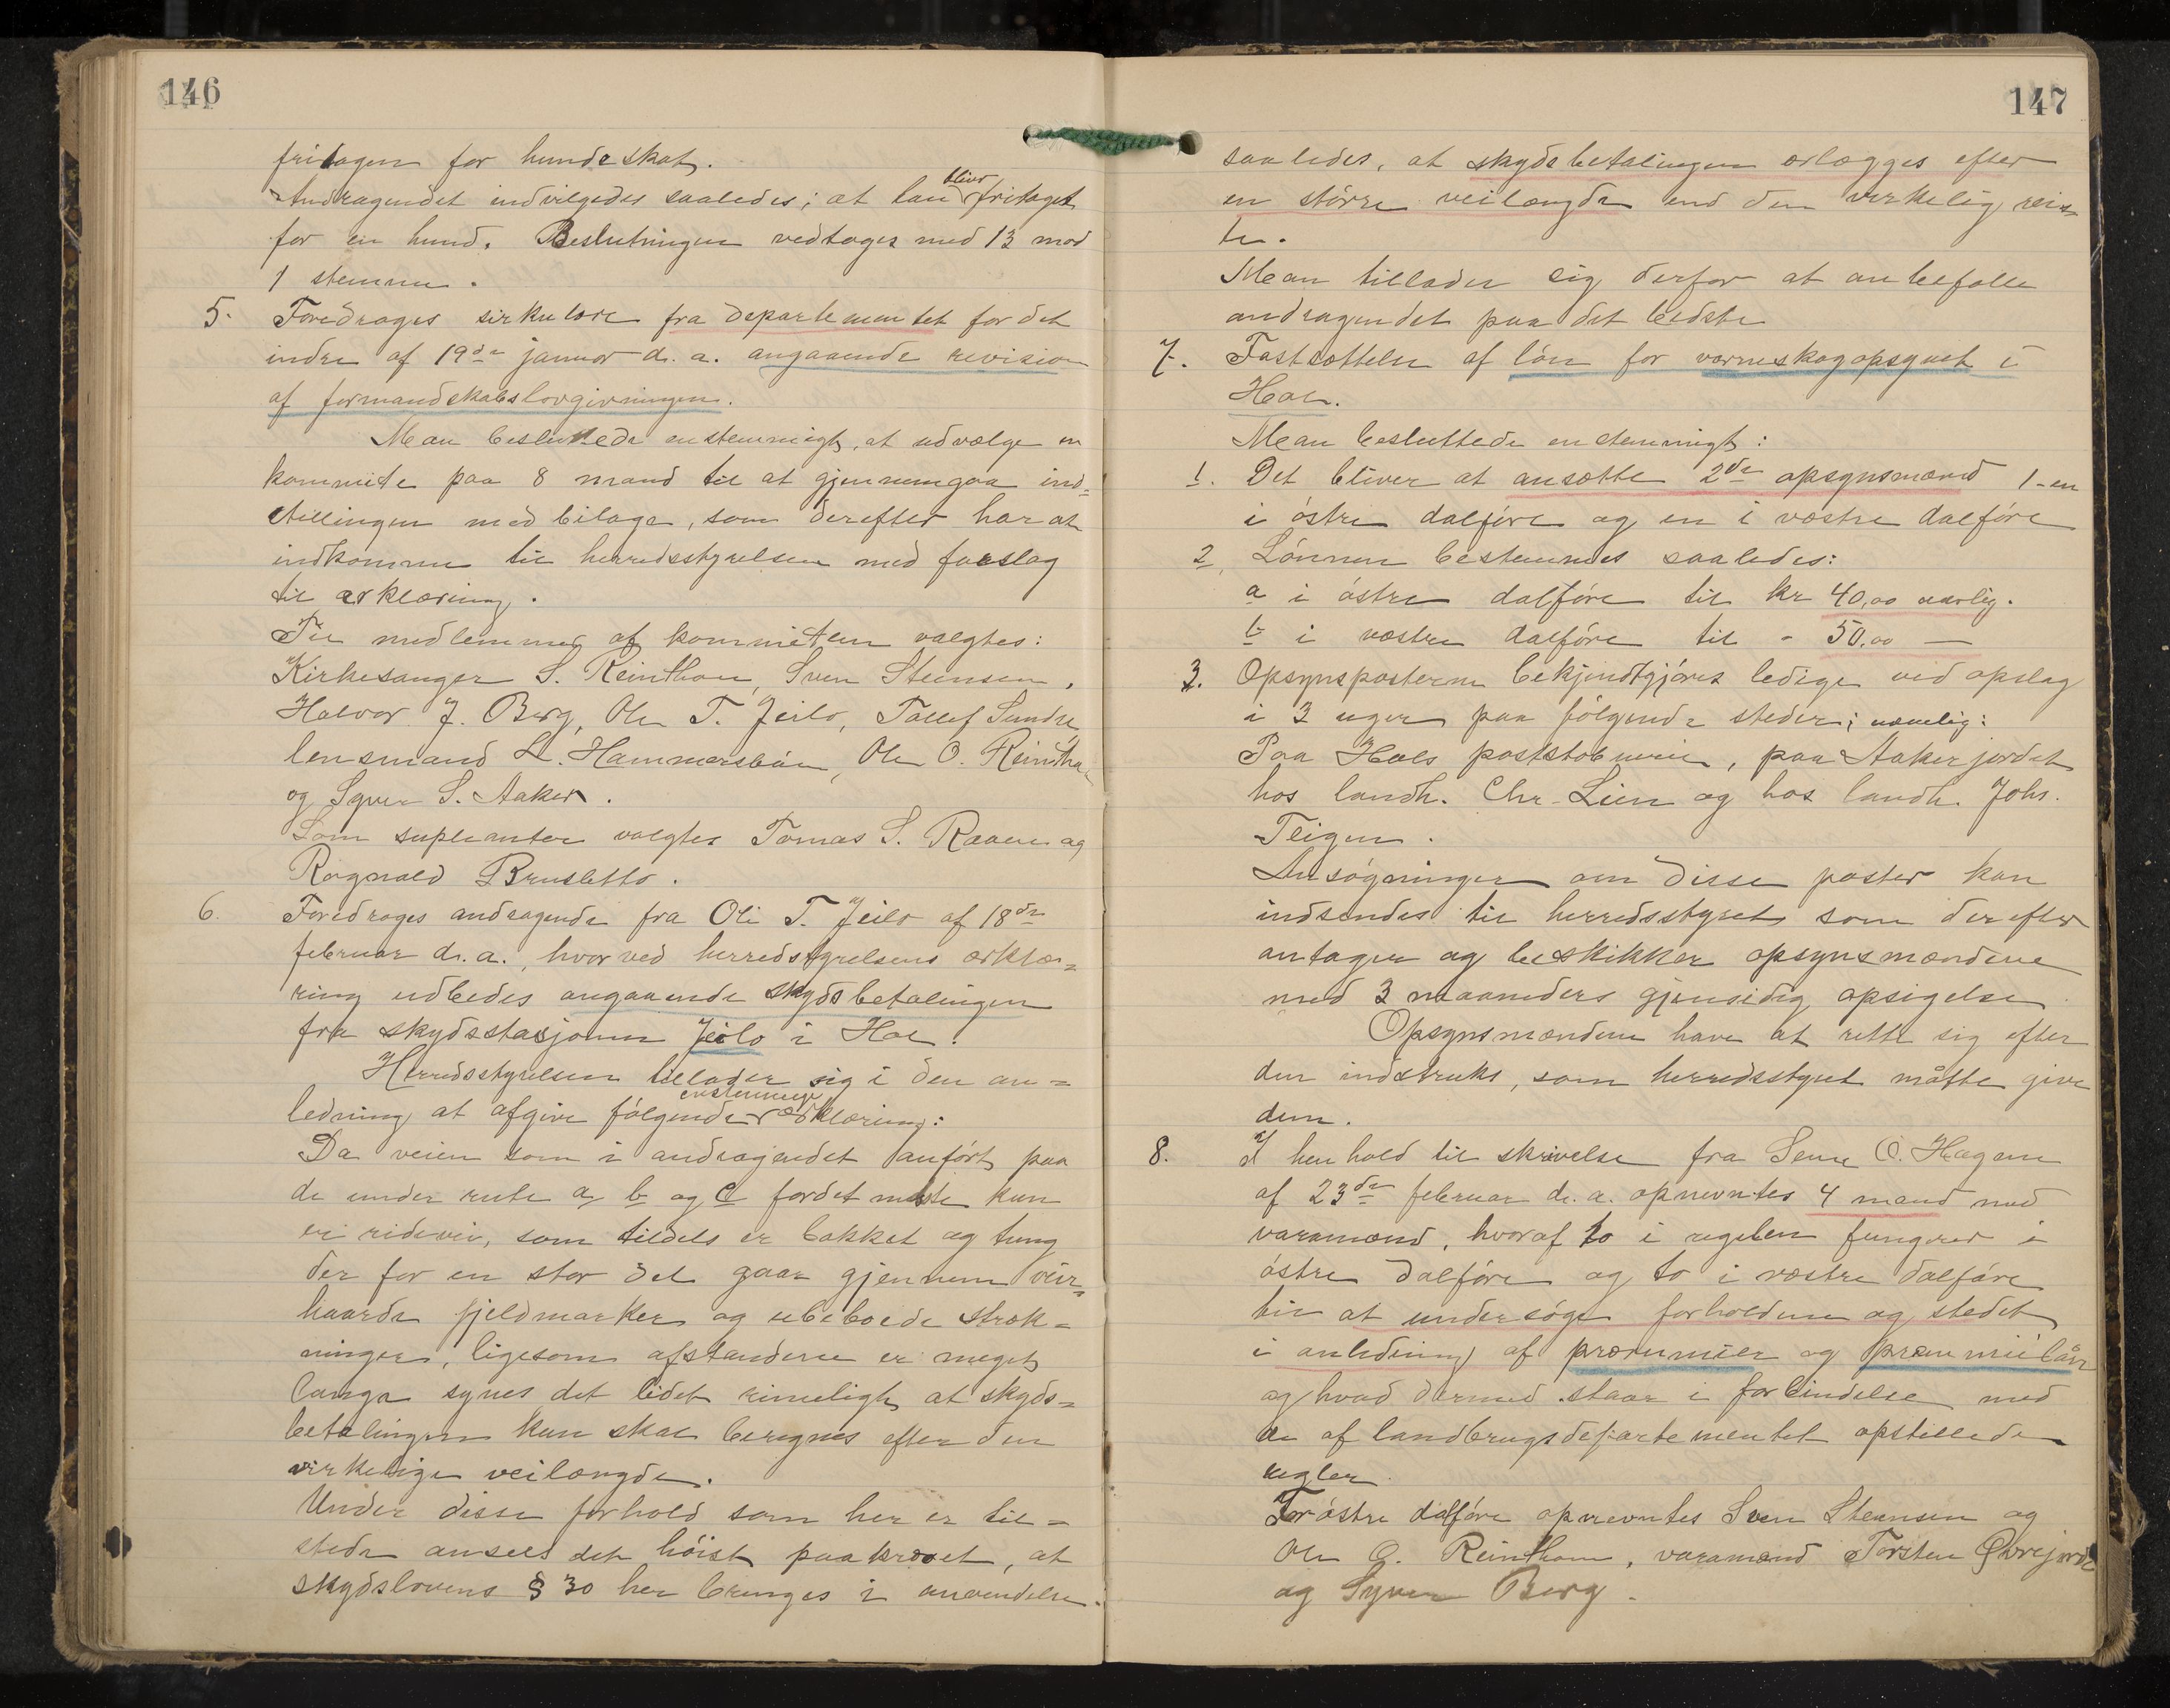 146
fritagen for hundeskat.
Andragendet indvilgedes saaledes; at han bliver fritaget
for en hund. Beslutningen vedtoges med 13 mod
1 stemme.
5. Foredroges sirkulære fra departementet for det
indre af 19de januar d. a. angaaende revision
af formandskabslovgivningen.
Man besluttede enstemmigt, at udvælge en
kommite paa 8 mand til at gjennemgaa ind=
stillingen med bilage, som derefter har at
indkomme til herredsstyrelsen med forslag
til erklæring.
Til medlemmer af kommiteen valgtes:
Kirkesanger S. Reinthon, Sven Steensen,
Halvor J. Berg, Ole T. Jeilo, Tollef Sundre
lensmand L. Hammersbøen, Ole O. Reinthon
og Syver S. Aaker.
Som supleanter valgtes Tomas S. Raaen og
Ragnvald Brusletto.
6. Foredroges andragende fra Ole T. Jeilo af 18de
februar d. a., hvorved herredsstyrelsens erklæ=
ring udbedes angaaende skydsbetalingen
fra skydsstasjonen Jeilo i Hol.
Herredsstyrelsen tillader sig i den an=
ledning at afgive følgende enstemmige erklæring:
Da veien som i andragendet anført paa
de under rute a, b og c fordetmeste kun
er ridevei, som tildels er bakket og tung
der for en stor del gaar gjennem veir=
haarde fjeldmarker og ubeboede stræk=
ninger, ligesom afstandene er meget
lange synes det lidet rimeligt at skyds=
betalingen kun skal beregnes efter den
virkelige veilængde.
Under disse forhold som her er til=
stede ansees det høist paakrævet, at
skydslovens § 30 her bringes i anvendelse.
147
saaledes, at skydsbetalingen erlægges efter
en større veilængde end den virkelig reis=
te.
Man tillader sig derfor at anbefalle
andragendet paa det bedste
7. Fastsættelse af løn for værneskogopsynet i
Hol.
Man besluttede enstemmigt:
1. Det bliver at ansætte 2de opsynsmænd 1-en
i østre dalføre og en i vestre dalføre
2. Lønnen bestemmes saaledes:
a i østre dalføre til kr 40,00 aarlig.
b i vestre dalføre til - 50.00 —
3. Opsynsposterne bekjendtgjøres ledige ved opslag
i 3 uger paa følgende steder; nemlig:
Paa Hols poststobneri, paa Aakerjordet
hos landh. Chr. Lien og hos landh. Johs.
Teigen.
Ansøgninger om disse poster kan
indsendes til herredsstyret som derefter
antager og beskikker opsynsmændene
med 3 maaneders gjensidig opsigelse
Opsynsmændene have at rette sig efter
den indstruks, som herredsstyret måtte give
dem.
8. I henhold til skrivelse fra Sene O. Hagene
af 23de februar d. a. opnevntes 4 mand med
varamænd, hvoraf to i regelen fungerer i
østre dalføre og to i vestre dalføre
til at undersøge forholdene og stedet
i anledning af præmier og præmielån
og hvad dermed staar i forbindelse med
de af landbrugsdepartementet opstillede
regler.
For østre dalføre opnevntes Sven Steensen og
Ole O. Reinthon, varamænd Torsten Øvrejorde
og Syver Berg.